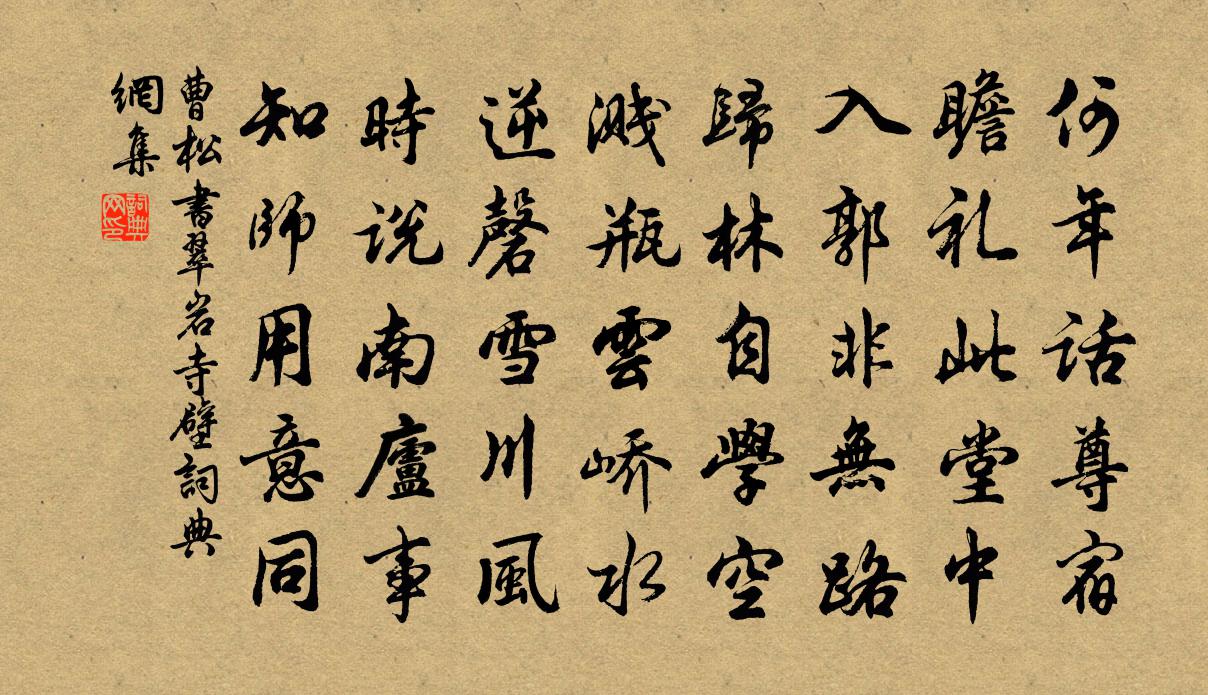 何年話尊宿
瞻礼此堂中
入郭非無路
歸林自學空
濺瓶雲峤水
逆磬雪川風
時説南廬事
知師用意同
曹松書翠岩寺壁詞典
網集
詞典
网印